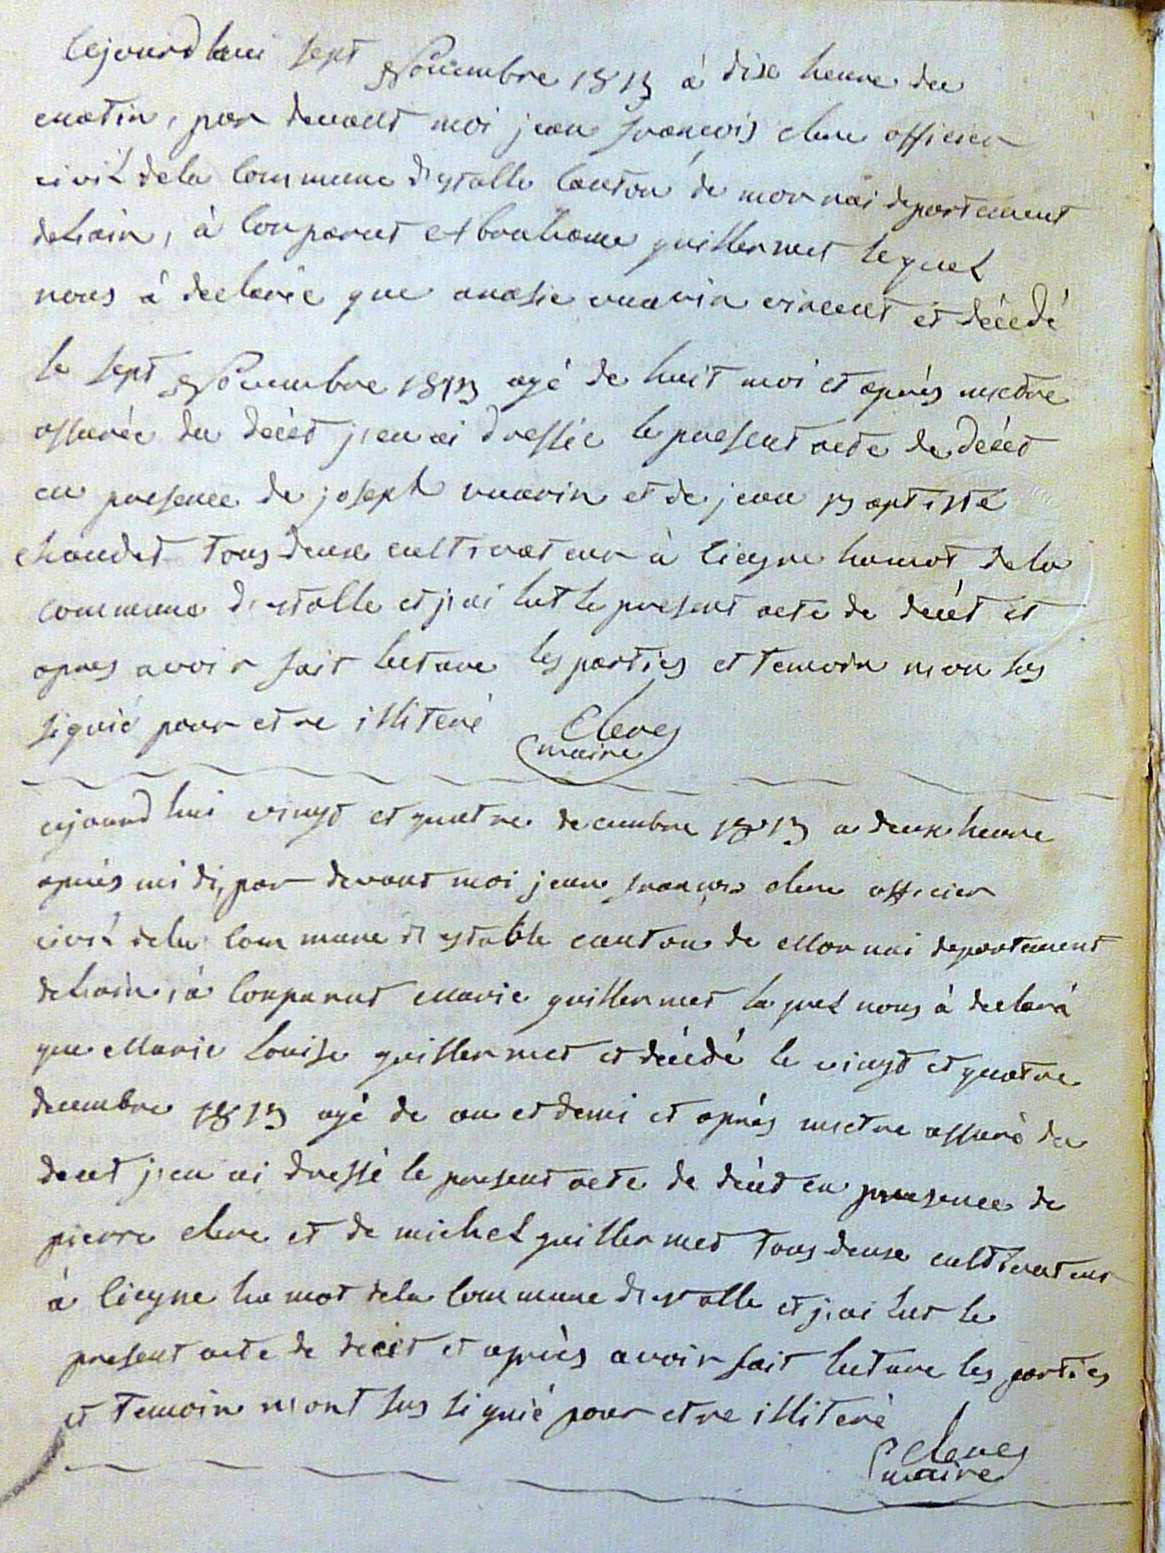 Cejourd hui sept Novembre 1813 à dix heure du
matin, par devant moi jean françois clere officier
civil dela Commune d'estalle Canton de mornai departement
delain, à Comparut et bonhome guillermet lequel
nous à declaré que anasie marin vincent et décedé
le sept Novembre 1813 agé de huit moi et après mettre
assurée du decet j'en ai dressée le present acte de decet
en presence de joseph marin et de jean Baptiste
chaudet tous deux cultivateur à licyne hamot dela
commune d'estalle et j'ai lut le present acte de decet et
apres avoir fait lecture les parties et temoin n'on sus
signié pour etre illiteré Clere
maire
cejourd hui vingt et quatre decembre 1813 a deux heure
après midi, par devant moi jean françois clere officier
civil dela Commune d'estable canton de Mornai departement
delain, à Comparut Marie guillermet laquel nous à declaré
que Marie Louise guillermet et décédé le vingt et quatre
decembre 1813 agé de an et demi et après mettre assuré du
decet j'en ai dressé le present acte de decet en presence de
pierre clere et de michel guillermet tous deux cultivateur
à licyne hamot dela Commune d'estalle et j'ai lut le
present acte de decet et après avoir fait lecture les parties
et temoin n'ont sus signié pour etre illiteré
Clere
maire